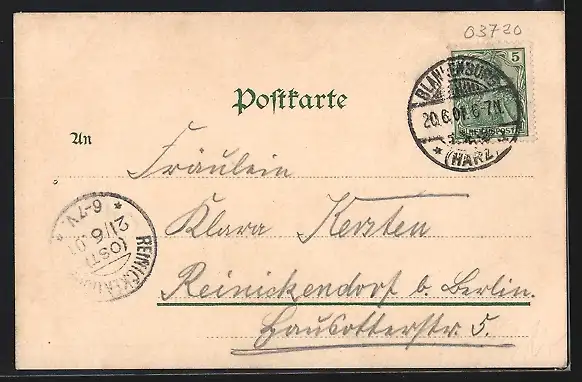 03720
5
BLANKENBURG
20.6.01.6-7N.
REICHSPOST
* (HARZ) *
Postkarte
An
Fräulein
Klara Kersten
Reinickendorf b. Berlin.
Hausotterstr 5.
REINICKENDORF
(OST)
21/6.01
6-7V.